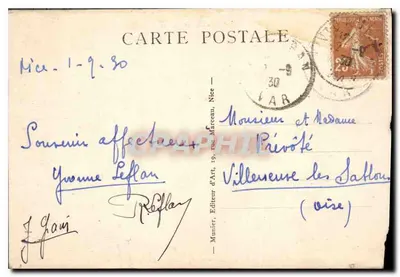 CARTE POSTALE
Nice - 1-9-30
-9
30
VAR
Souvenir affectueux
Yvonne Leflan
Munier, Editeur d'Art, Marceau, Nice
Monsieur et Madame
Prévôté
Villeneuve les Sablons
(Oise)